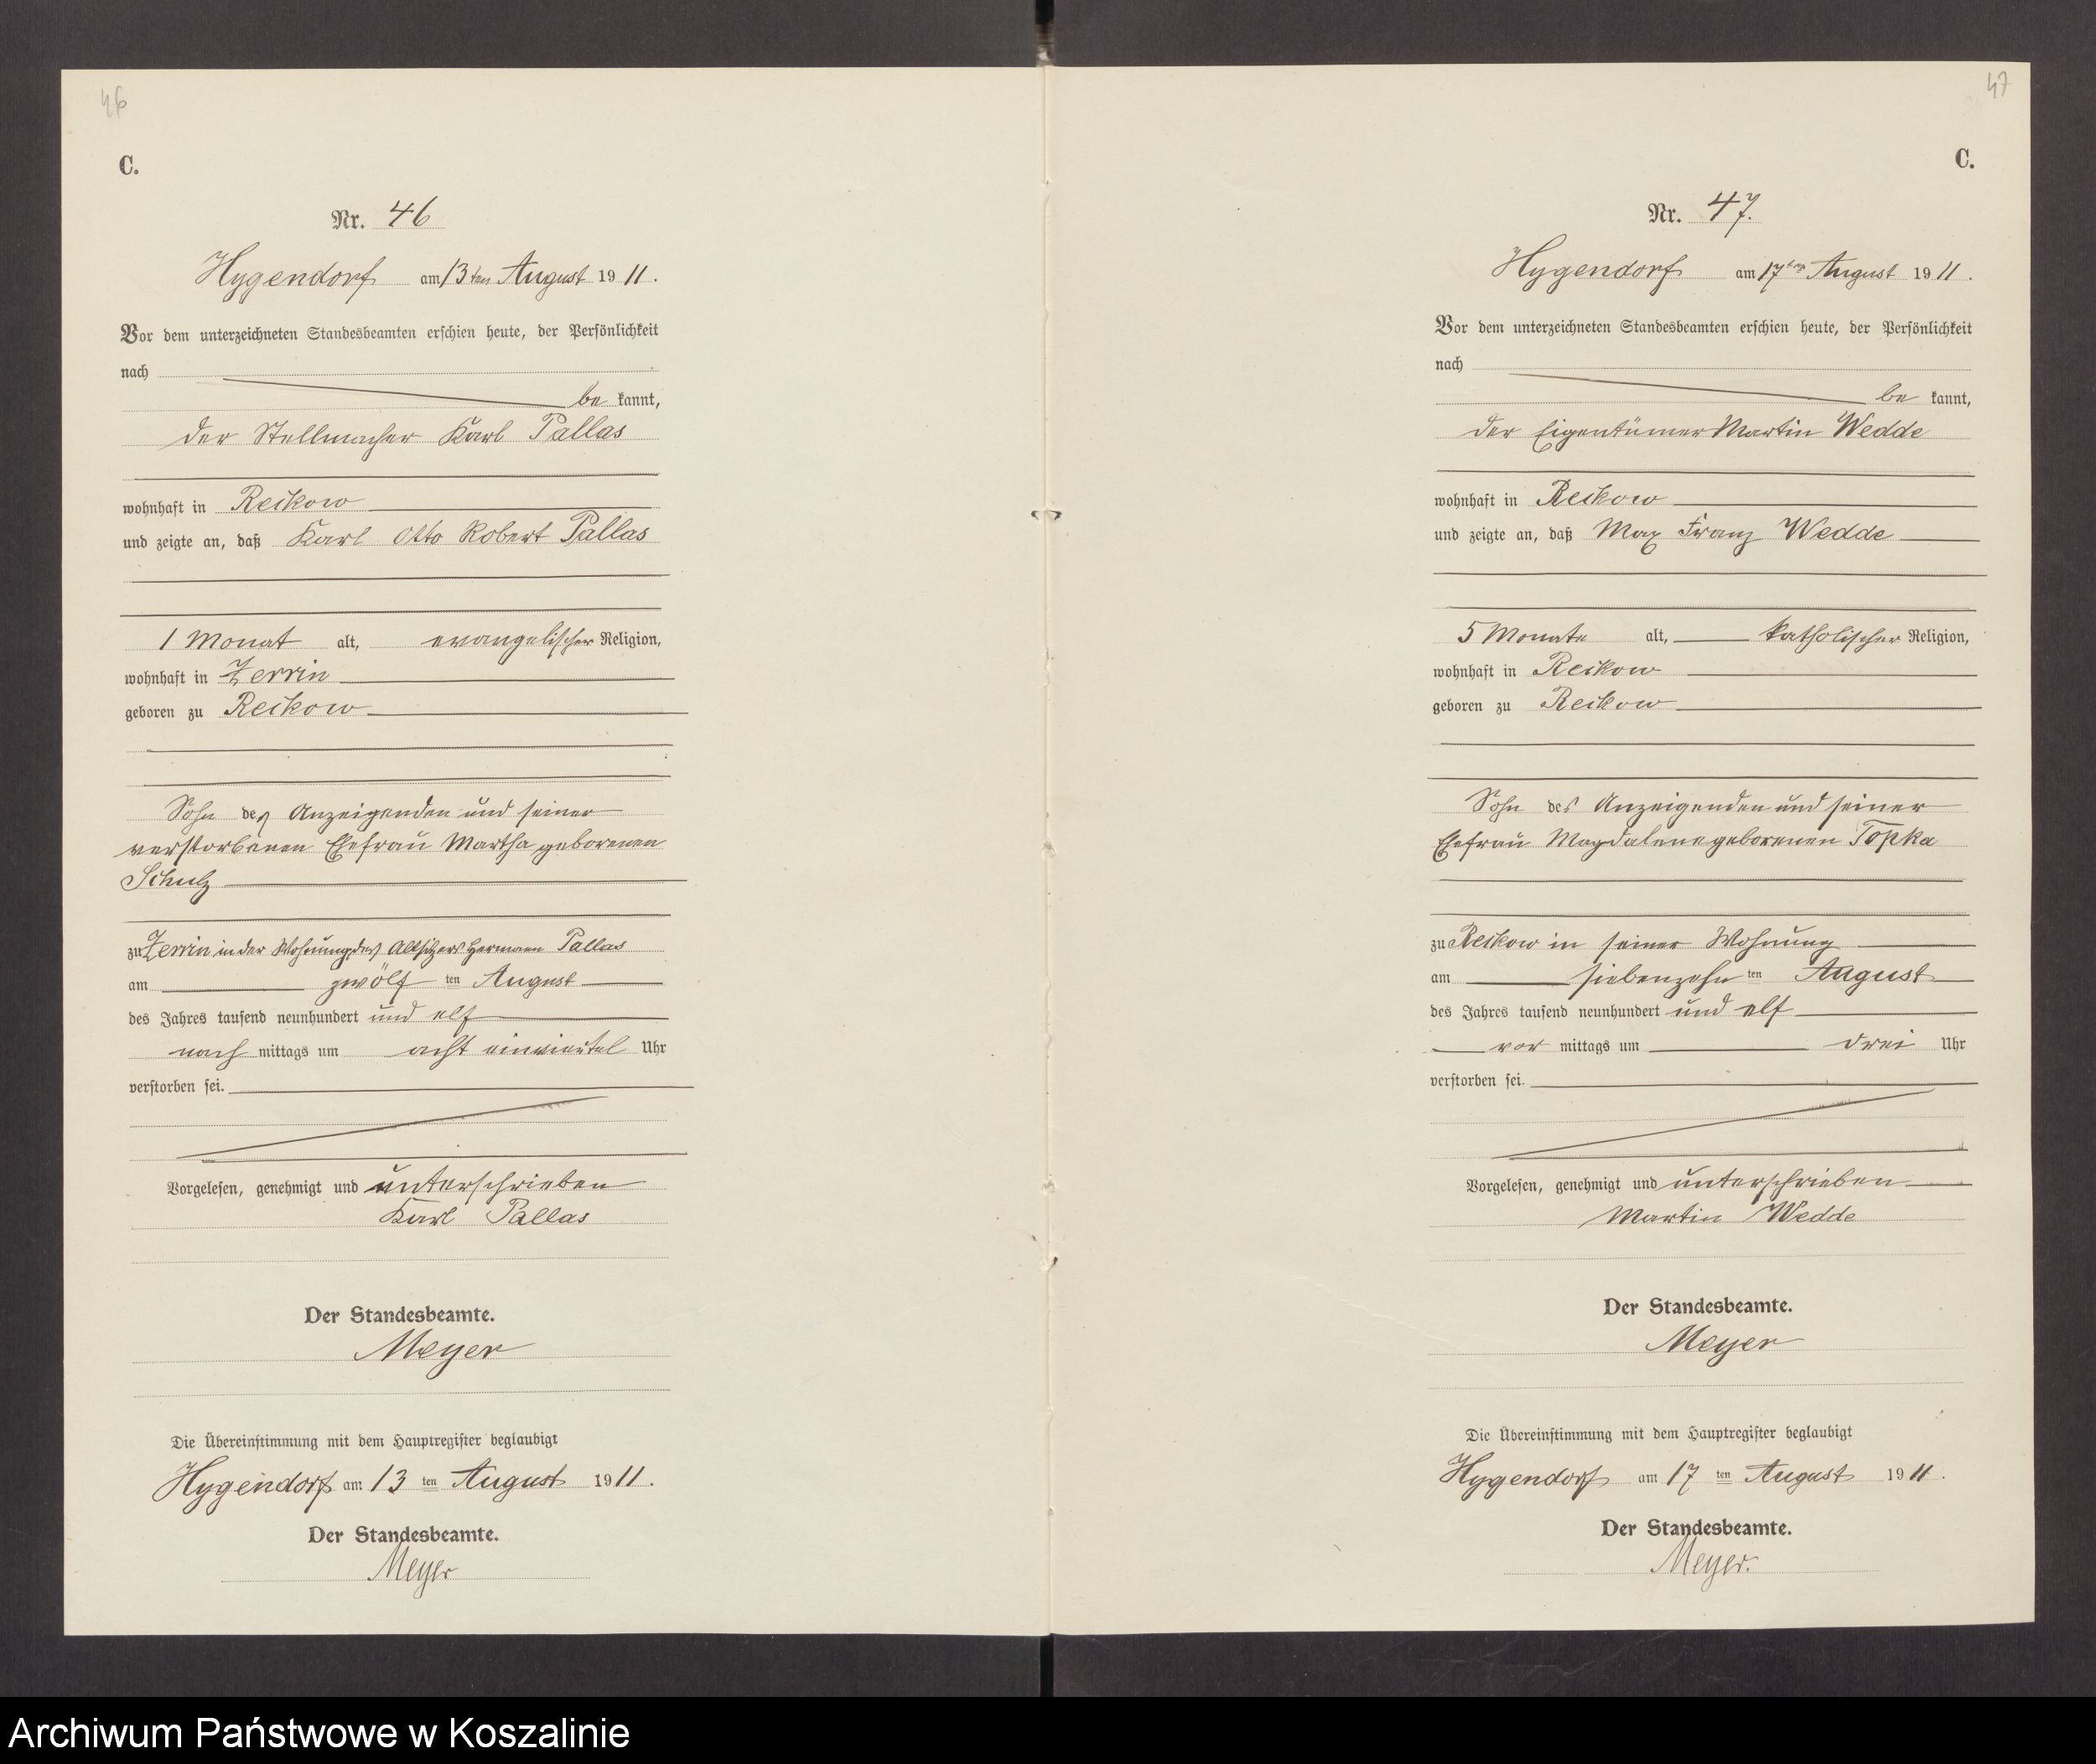 46
C.
Nr. 46
Hygendorf am 13ten August 1911.
Vor dem unterzeichneten Standesbeamten erschien heute, der Persönlichkeit
nach
be kannt,
der Stellmacher Karl Pallas
wohnhaft in Reikow
und zeigte an, daß Karl Otto Robert Pallas
1 Monat alt, evangelischer Religion,
wohnhaft in Zerrin
geboren zu Reikow
Sohn des Anzeigenden und seiner
verstorbenen Ehefrau Martha geborenen
Schulz
zu Zerrin in der Wohnung des Altsitzers Hermann Pallas
am zwölf ten August
des Jahres tausend neunhundert und elf
nach mittags um acht einviertel Uhr
verstorben sei.
Vorgelesen, genehmigt und unterschrieben
Karl Pallas
Der Standesbeamte.
Meyer
Die Übereinstimmung mit dem Hauptregister beglaubigt
Hygendorf am 13 ten August 1911.
Der Standesbeamte.
Meyer
47
C.
Nr. 47.
Hygendorf am 17ten August 1911.
Vor dem unterzeichneten Standesbeamten erschien heute, der Persönlichkeit
nach
be kannt,
der Eigentümer Martin Wedde
wohnhaft in Reikow
und zeigte an, daß Max Franz Wedde
5 Monate alt, katholischer Religion,
wohnhaft in Reikow
geboren zu Reikow
Sohn des Anzeigenden und seiner
Ehefrau Magdalene geborenen Topka
zu Reikow in seiner Wohnung
am siebenzehn ten August
des Jahres tausend neunhundert und elf
vor mittags um drei Uhr
verstorben sei.
Vorgelesen, genehmigt und unterschrieben
Martin Wedde
Der Standesbeamte.
Meyer
Die Übereinstimmung mit dem Hauptregister beglaubigt
Hygendorf am 17 ten August 1911.
Der Standesbeamte.
Meyer.
Archiwum Państwowe w Koszalinie